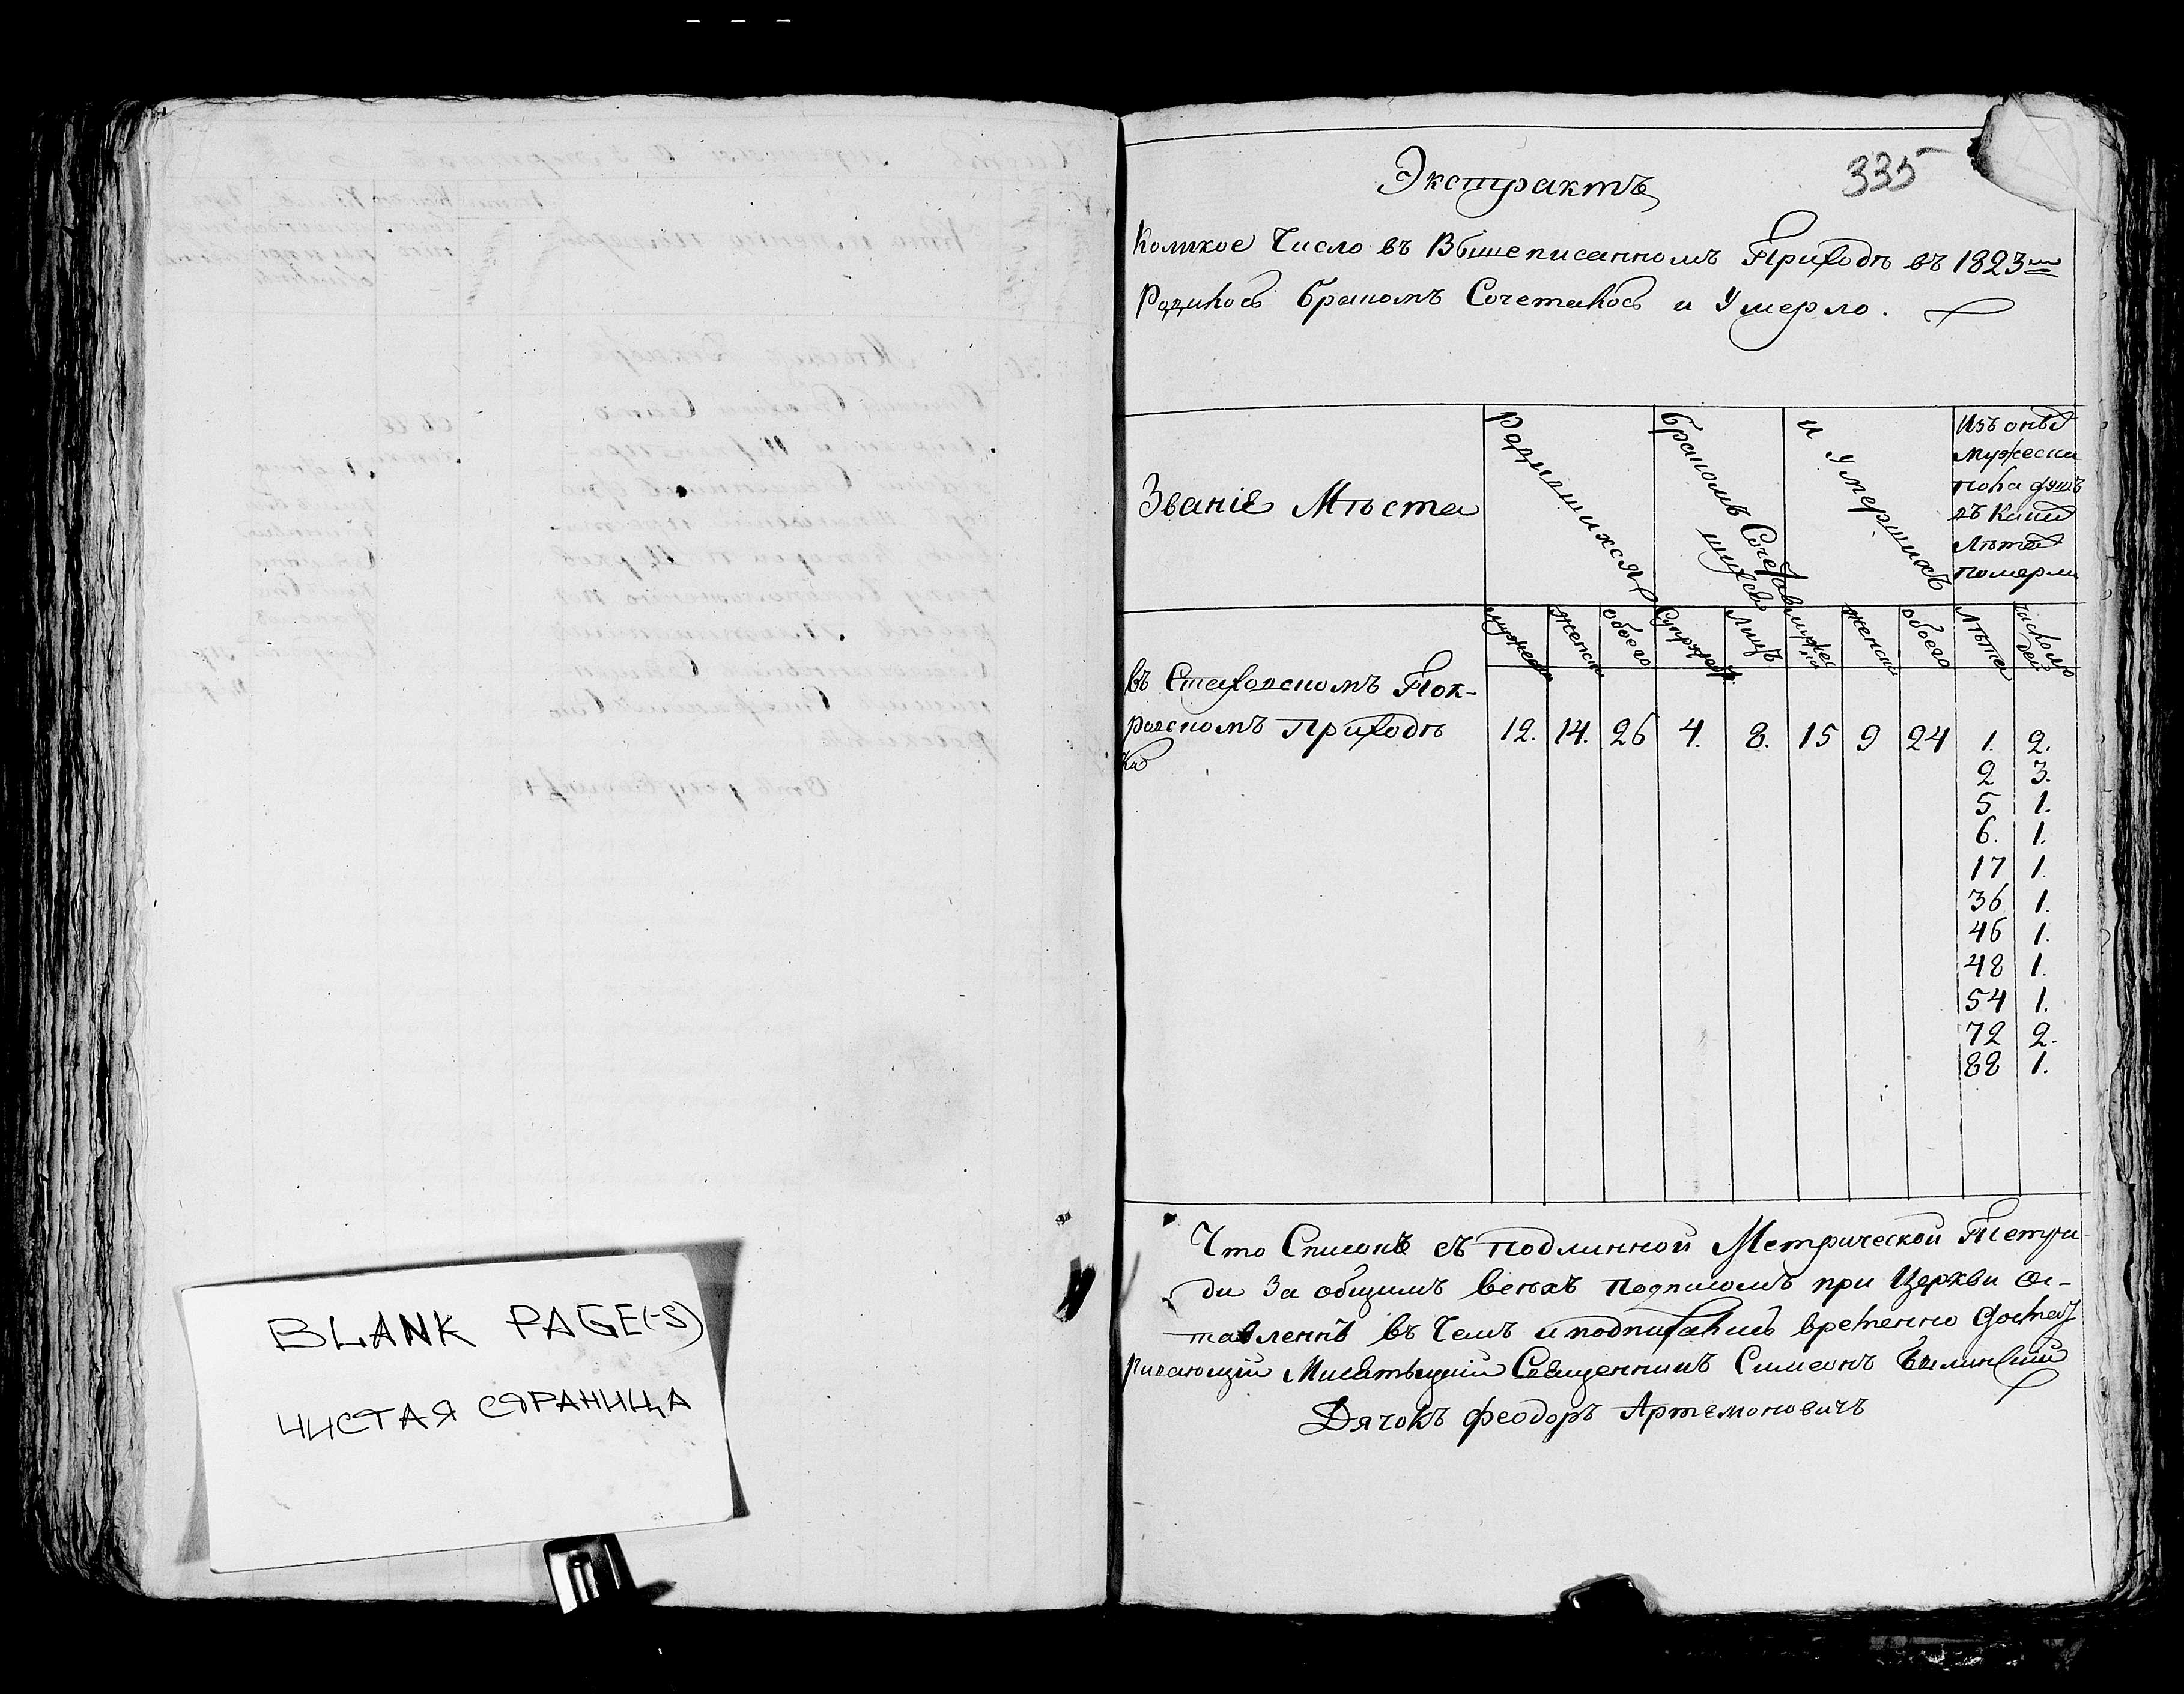 BLANK PAGE(-S)
ЧИСТАЯ СТРАНИЦА
335
Экстрактъ
Коликое Число въ Вышеписанномъ Приходѣ въ 1823мъ
Родилось бракомъ Сочеталось и Умерло.
Званіе Мѣста
Родившихся
бракомъ Сочетав
шихся
и Умершихъ
Изъ оныхъ
Мужеска
пола душъ
въ Какихъ
Лѣтахъ
померли
мужеска
женска
обоего
Супружес
Лицъ
мужес
ка
женска
обоего
Лѣта
число
въ Стаховскомъ Пок-
ровскомъ Приходѣ 12. 14. 26 4. 8. 15 9 24 1. 2.
2 3.
5 1.
6. 1.
17 1.
36 1.
46 1.
48 1.
54 1.
72 2.
88 1.
Что Списокъ съ подлинной Метрической Тетра-
ди За общимъ всѣхъ подписомъ при Церкви ос-
тавленъ въ Чемъ и подписались временно
Священникъ Симеонъ
Дячокъ Феодоръ Артемоновичъ